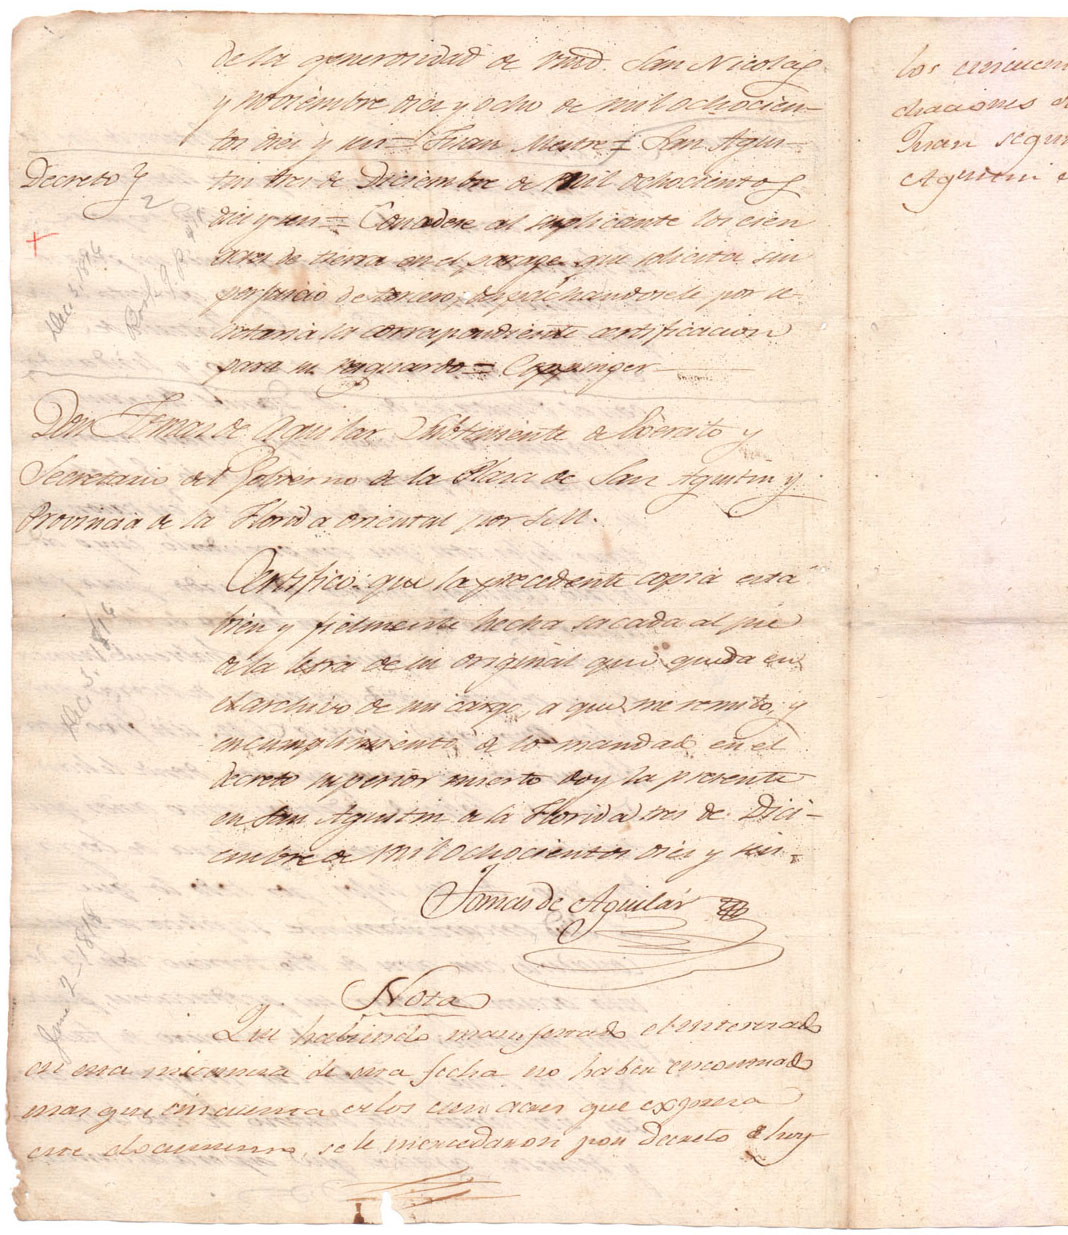 de la generosidad de Vmd. San Nicolas
y Noviembre diez y ocho de mil ochocien-
tos diez y seis = Juan Mestre = San Agus-
Decreto
tin tres de Diciembre de mil ochocientos
diez y seis = Concedese al suplicante los cien
acres de tierra en el parage que solicita, sin
perjuicio de tercero, despachandosele por se-
cretaria la correspondiente certificacion
para su resguardo = Coppinger
Don Tomas de Aguilar Subteniente de Exercito y
Secretario del Gobierno de la Plaza de San Agustin y
Provincia de la Florida oriental por S.M.
Certifico: que la precedente copia esta
bien y fielmente hecha sacada al pie
de la letra de su original que queda en
el archivo de mi cargo, a que me remito, y
en cumplimiento de lo mandado en el
decreto superior inserto doy la presente
en San Agustin de la Florida tres de Dici-
embre de mil ochocientos diez y seis.
Tomas de Aguilar
Nota
Que habiendo manifestado el interesado
en una instancia de esta fecha no haber encontrado
mas que cincuenta de los cien acres que expresa
este documento, se le mercedaron por decreto de hoy
Dec 3. 1816
Dec 3. 1816
June 2 - 1818
los cincuen
dicaciones
Juan segun
Agustin